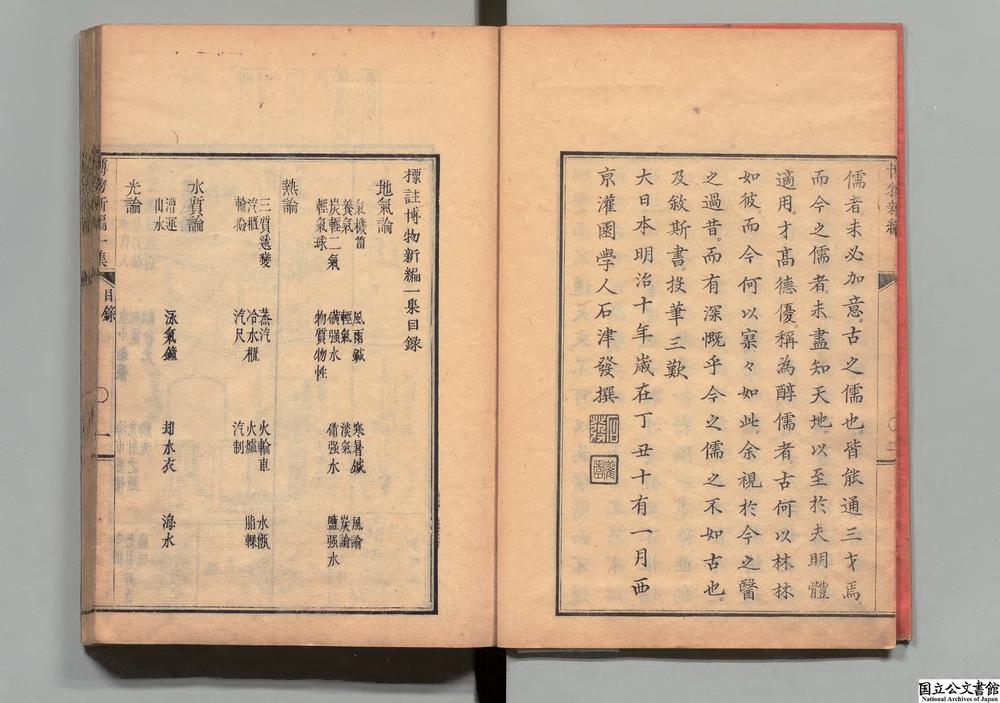 博物新編
〇二
儒者未必加意。古之儒也。皆能通三才焉。
而今之儒者。未盡知天地。以至於夫明體
適用。才髙德優。稱為醇儒者。古何以林林
如彼。而今何以寥々如此。余視於今之醫
之過昔。而有深慨乎今之儒之不如古也。
及敘斯書。投筆三歎
大日本明治十年歳在丁丑十有一月西
京灌園學人石津發撰
標註博物新編一集目録
地氣論
氣機筩 風雨鍼 寒暑鍼 風論
養氣 輕氣 淡氣 炭論
炭輕二氣 磺强水 硝强水 鹽强水
輕氣球 物質物性
熱論
三質遞變 蒸汽 火輪車 水甑
汽櫃 冷水櫃 火爐 脂楪
輪撥 汽尺 汽制
水質論
漕運 泳氣鐘 却水衣 海水
山水
光論
博物新編一集
目録
〇一
国立公文書館
National Archives of Japan